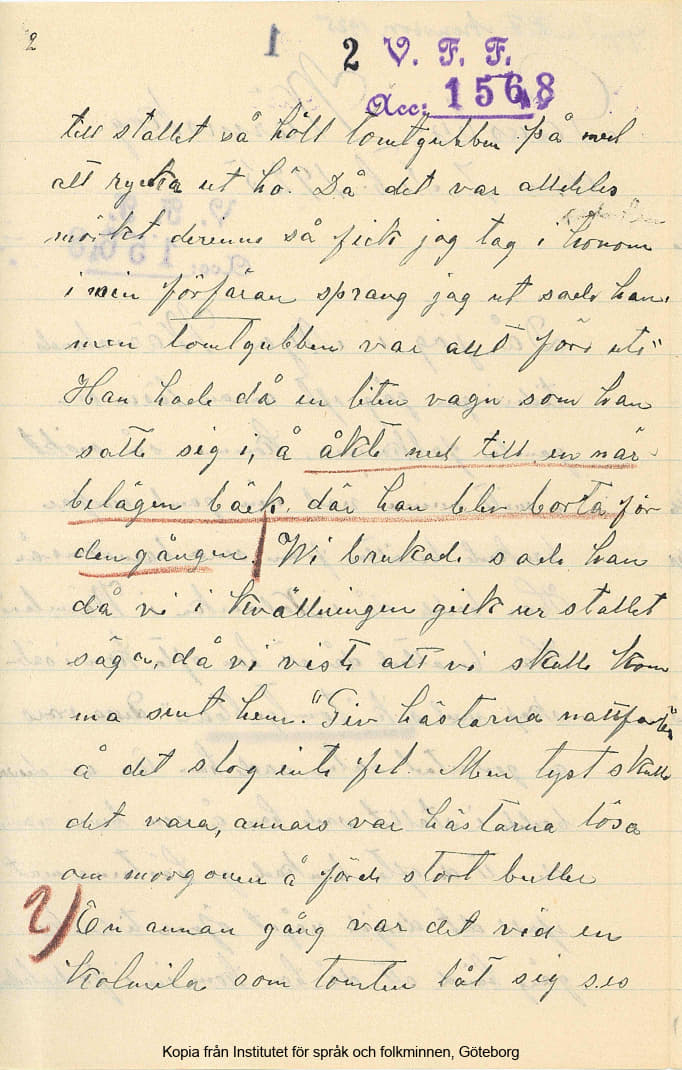 2
1 2 V. F. F.
Acc: 1568
till stallet så höll tomtgubben på med
att rycka ut hö. Då det var alldeles
mörkt derinne så fick jag tag i honom
i min förfäran sprang jag ut sade han.
men tomtgubben var allt före ute"
Han hade då en liten vagn som han
satte sig i, å åkte ned till en när
belägen bäck. där han blev borta för
den gången. Wi brukade sade han
då vi i kvällningen gick ur stallet
säga, då vi viste att vi skulle kom
ma sent hem. "Giv hästarna nattfoder"
å det slog inte fel. Men tyst skulle
det vara, annars var hästarna lösa
om morgonen å förde stort buller
2) En annan gång var det vid en
Kolmila som tomten låt sig ses
Kopia från Institutet för språk och folkminnen, Göteborg